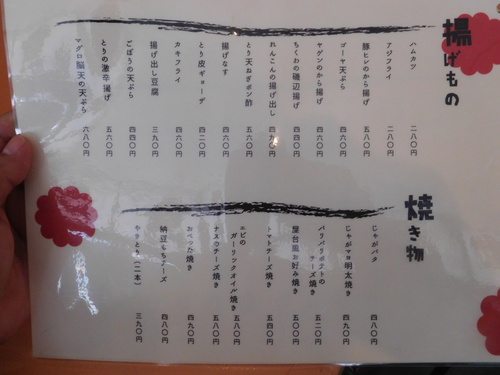 揚げもの
ハムカツ 二八〇円
アジフライ 二八〇円
豚ヒレのから揚げ 五八〇円
ゴーヤ天ぷら 四六〇円
ヤゲンのから揚げ 四六〇円
ちくわの磯辺揚げ 四六〇円
れんこんの揚げ出し 四九〇円
とり天ねぎポン酢 五六〇円
揚げなす 四六〇円
とり皮ギョーザ 四二〇円
カキフライ 四六〇円
揚げ出し豆腐 三九〇円
ごぼうの天ぷら 四六〇円
とりの激辛揚げ 五六〇円
マグロ脳天の天ぷら 六八〇円
焼き物
じゃがバタ 四八〇円
じゃがマヨ明太焼き 四九〇円
パリパリポテトの
チーズ焼き 五二〇円
屋台風お好み焼き 五〇〇円
トマトチーズ焼き 五四〇円
エビの
ガーリックオイル焼き 五八〇円
ナスのチーズ焼き 五八〇円
おぺった焼き 四九〇円
納豆もちチーズ 四八〇円
やきとり(二本) 三九〇円